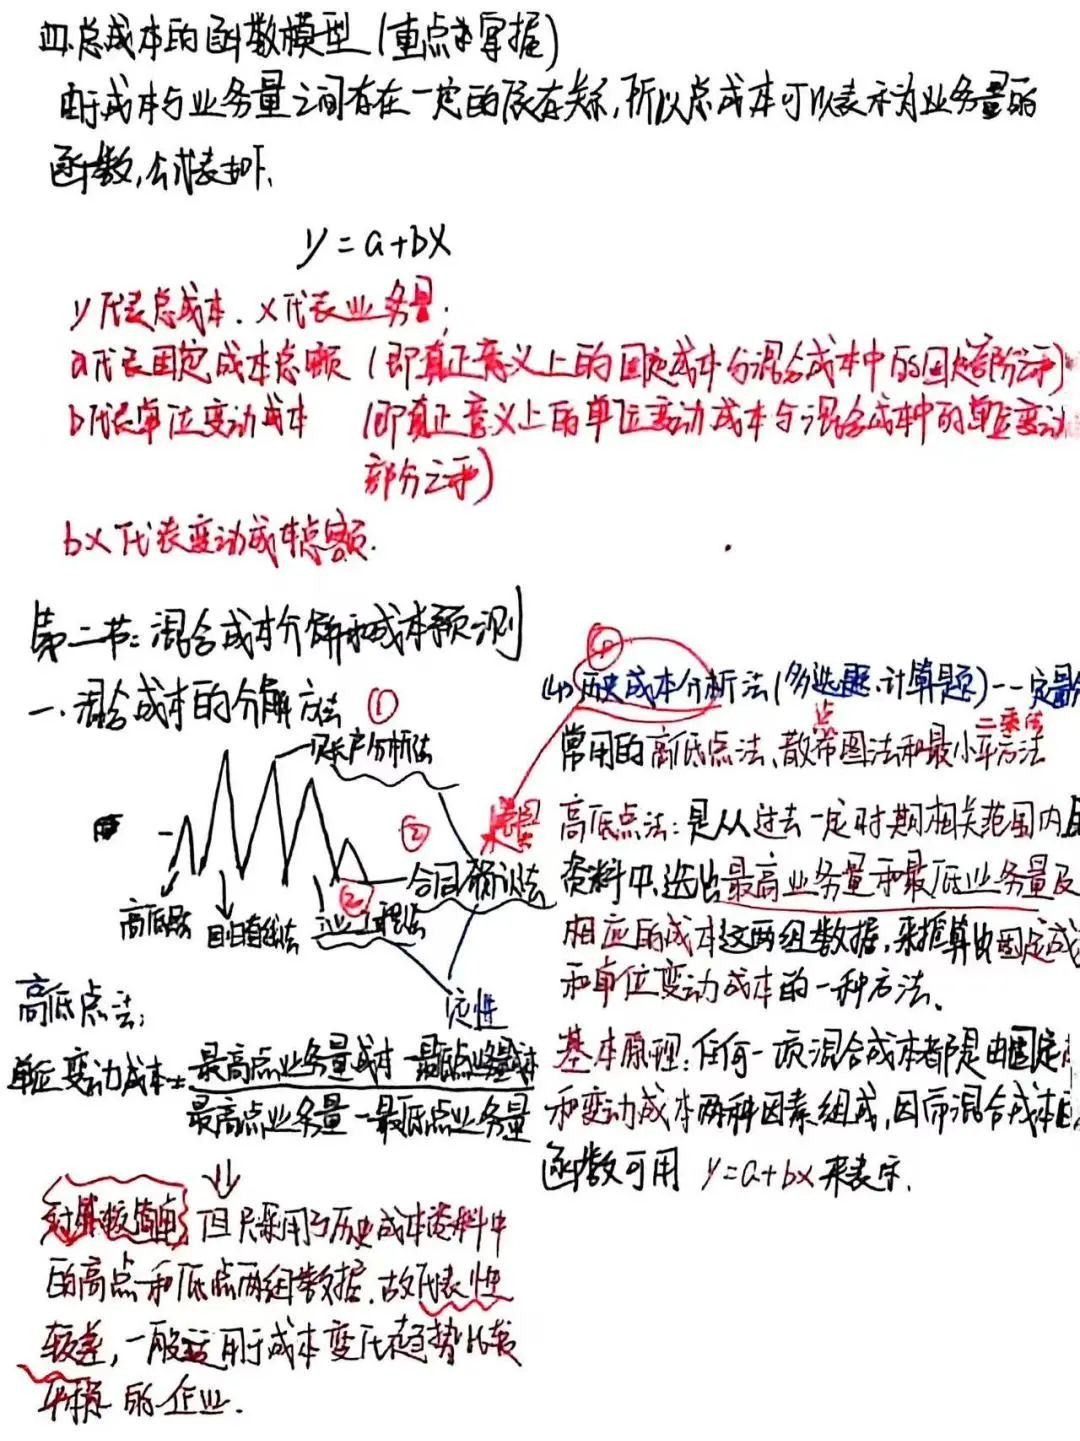 四.总成本的函数模型(重点掌握)
由于成本与业务量之间存在一定的依存关系,所以总成本可以表示为业务量的
函数,公式表如下.
y = a+bx
y代表总成本.x代表业务量;
a代表固定成本总额 (即真正意义上的固定成本与混合成本中的固定部分之和)
b代表单位变动成本 (即真正意义上的单位变动成本与混合成本中的单位变动
部分之和)
bx代表变动成本总额.
第二节:混合成本分解和成本预测
一.混合成本的分解方法 ①
账户分析法
②
合同确认法
高低点法
回归直线法
工业工程法
定性
高低点法:
单位变动成本= 最高点业务量成本-最低点业务量成本
最高点业务量-最低点业务量
计算较简单,但只采用了历史成本资料中
的高点和低点两组数据,故代表性
较差,一般适用于成本变化趋势比较
平稳的企业.
(4)历史成本分析法(多选题.计算题)--定量
二乘法
常用的高低点法、散布图法和最小平方法
点
掌握
高低点法:是从过去一定时期相关范围内
资料中,选出最高业务量和最低业务量及
相应的成本这两组数据,来推算出固定成
和单位变动成本的一种方法.
基本原理:任何一项混合成本都是由固定
和变动成本两种因素组成,因而混合成本
函数可用 y=a+bx来表示.